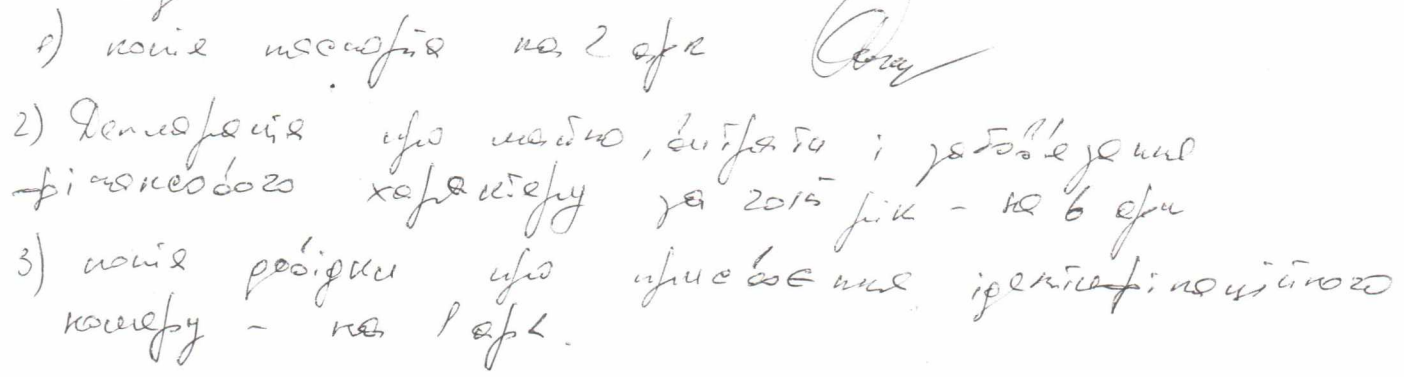 1) копія паспорта на 2 арк
2) Декларація про майно, витрати і зобов'язання
фінансового характеру за 2015 рік - на 6 арк
3) копія довідки про присвоєння ідентифікаційного
номеру - на 1 арк.